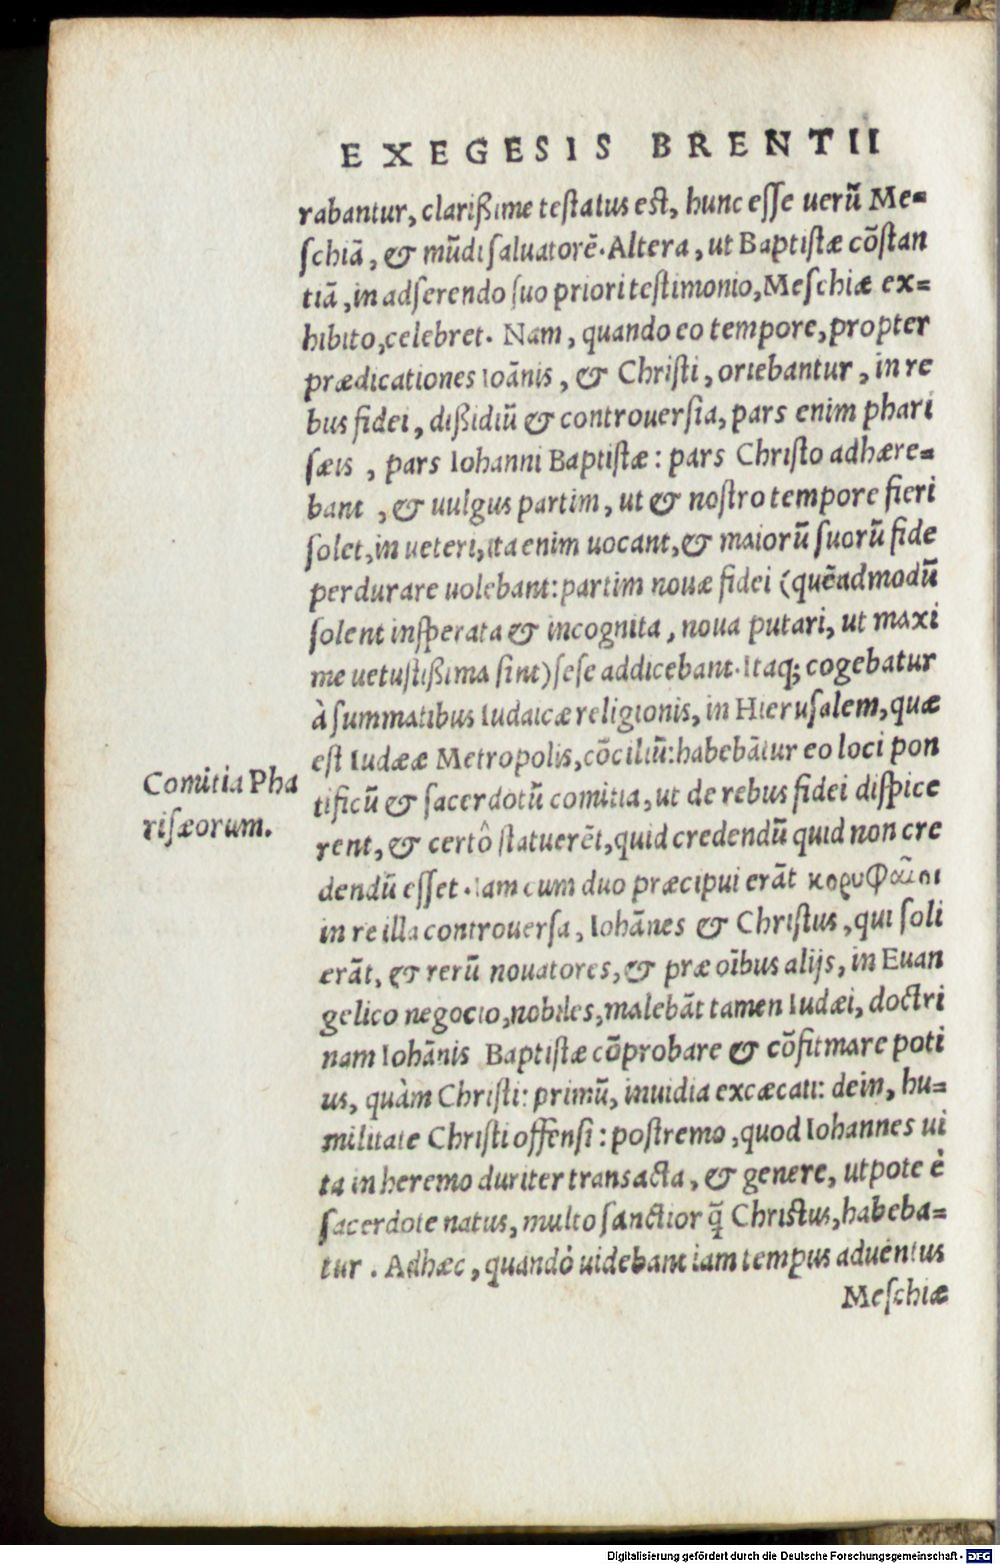 EXEGESIS BRENTII
rabantur, clarißime teſtatus eſt, hunc eſſe uerũ Me=
ſchiã, & mũdi ſaluatorẽ. Altera, ut Baptiſtæ cõſtan
tiã, in adſerendo ſuo priori teſtimonio, Meſchiæ ex=
hibito, celebret. Nam, quando eo tempore, propter
prædicationes Ioãnis, & Chriſti, oriebantur, in re
bus fidei, dißidiũ & controuerſia, pars enim phari
ſæis, pars Iohanni Baptiſtæ: pars Chriſto adhære=
bant, & uulgus partim, ut & noſtro tempore fieri
ſolet, in ueteri, ita enim uocant, & maiorũ ſuorũ fide
perdurare uolebant: partim nouæ fidei (quẽadmodũ
ſolent inſperata & incognita, noua putari, ut maxi
me uetuſtißima ſint) ſeſe addicebant. Itaq; cogebatur
à ſummatibus Iudaicæ religionis, in Hieruſalem, quæ
eſt Iudææ Metropolis, cõciliũ: habebãtur eo loci pon
tificũ & ſacerdotũ comitia, ut de rebus fidei diſpice
rent, & certô ſtatuerẽt, quid credendũ quid non cre
dendũ eſſet. Iam cum duo præcipui erãt κορυφαῖοι
in re illa controuerſa, Iohãnes & Chriſtus, qui ſoli
erãt, & rerũ nouatores, & præ oĩbus alijs, in Euan
gelico negocio, nobiles, malebãt tamen Iudæi, doctri
nam Iohãnis Baptiſtæ cõprobare & cõfitmare poti
us, quàm Chriſti: primũ, inuidia excæcati: dein, hu=
militate Chriſti offenſi: poſtremo, quod Iohannes ui
ta in heremo duriter transacta, & genere, utpote è
ſacerdote natus, multo ſanctior q̃ Chriſtus, habeba=
tur. Adhæc, quandò uidebant iam tempus aduentus
Meſchiæ
Comitia Pha
riſæorum.
Digitalisierung gefördert durch die Deutsche Forschungsgemeinschaft - DFG